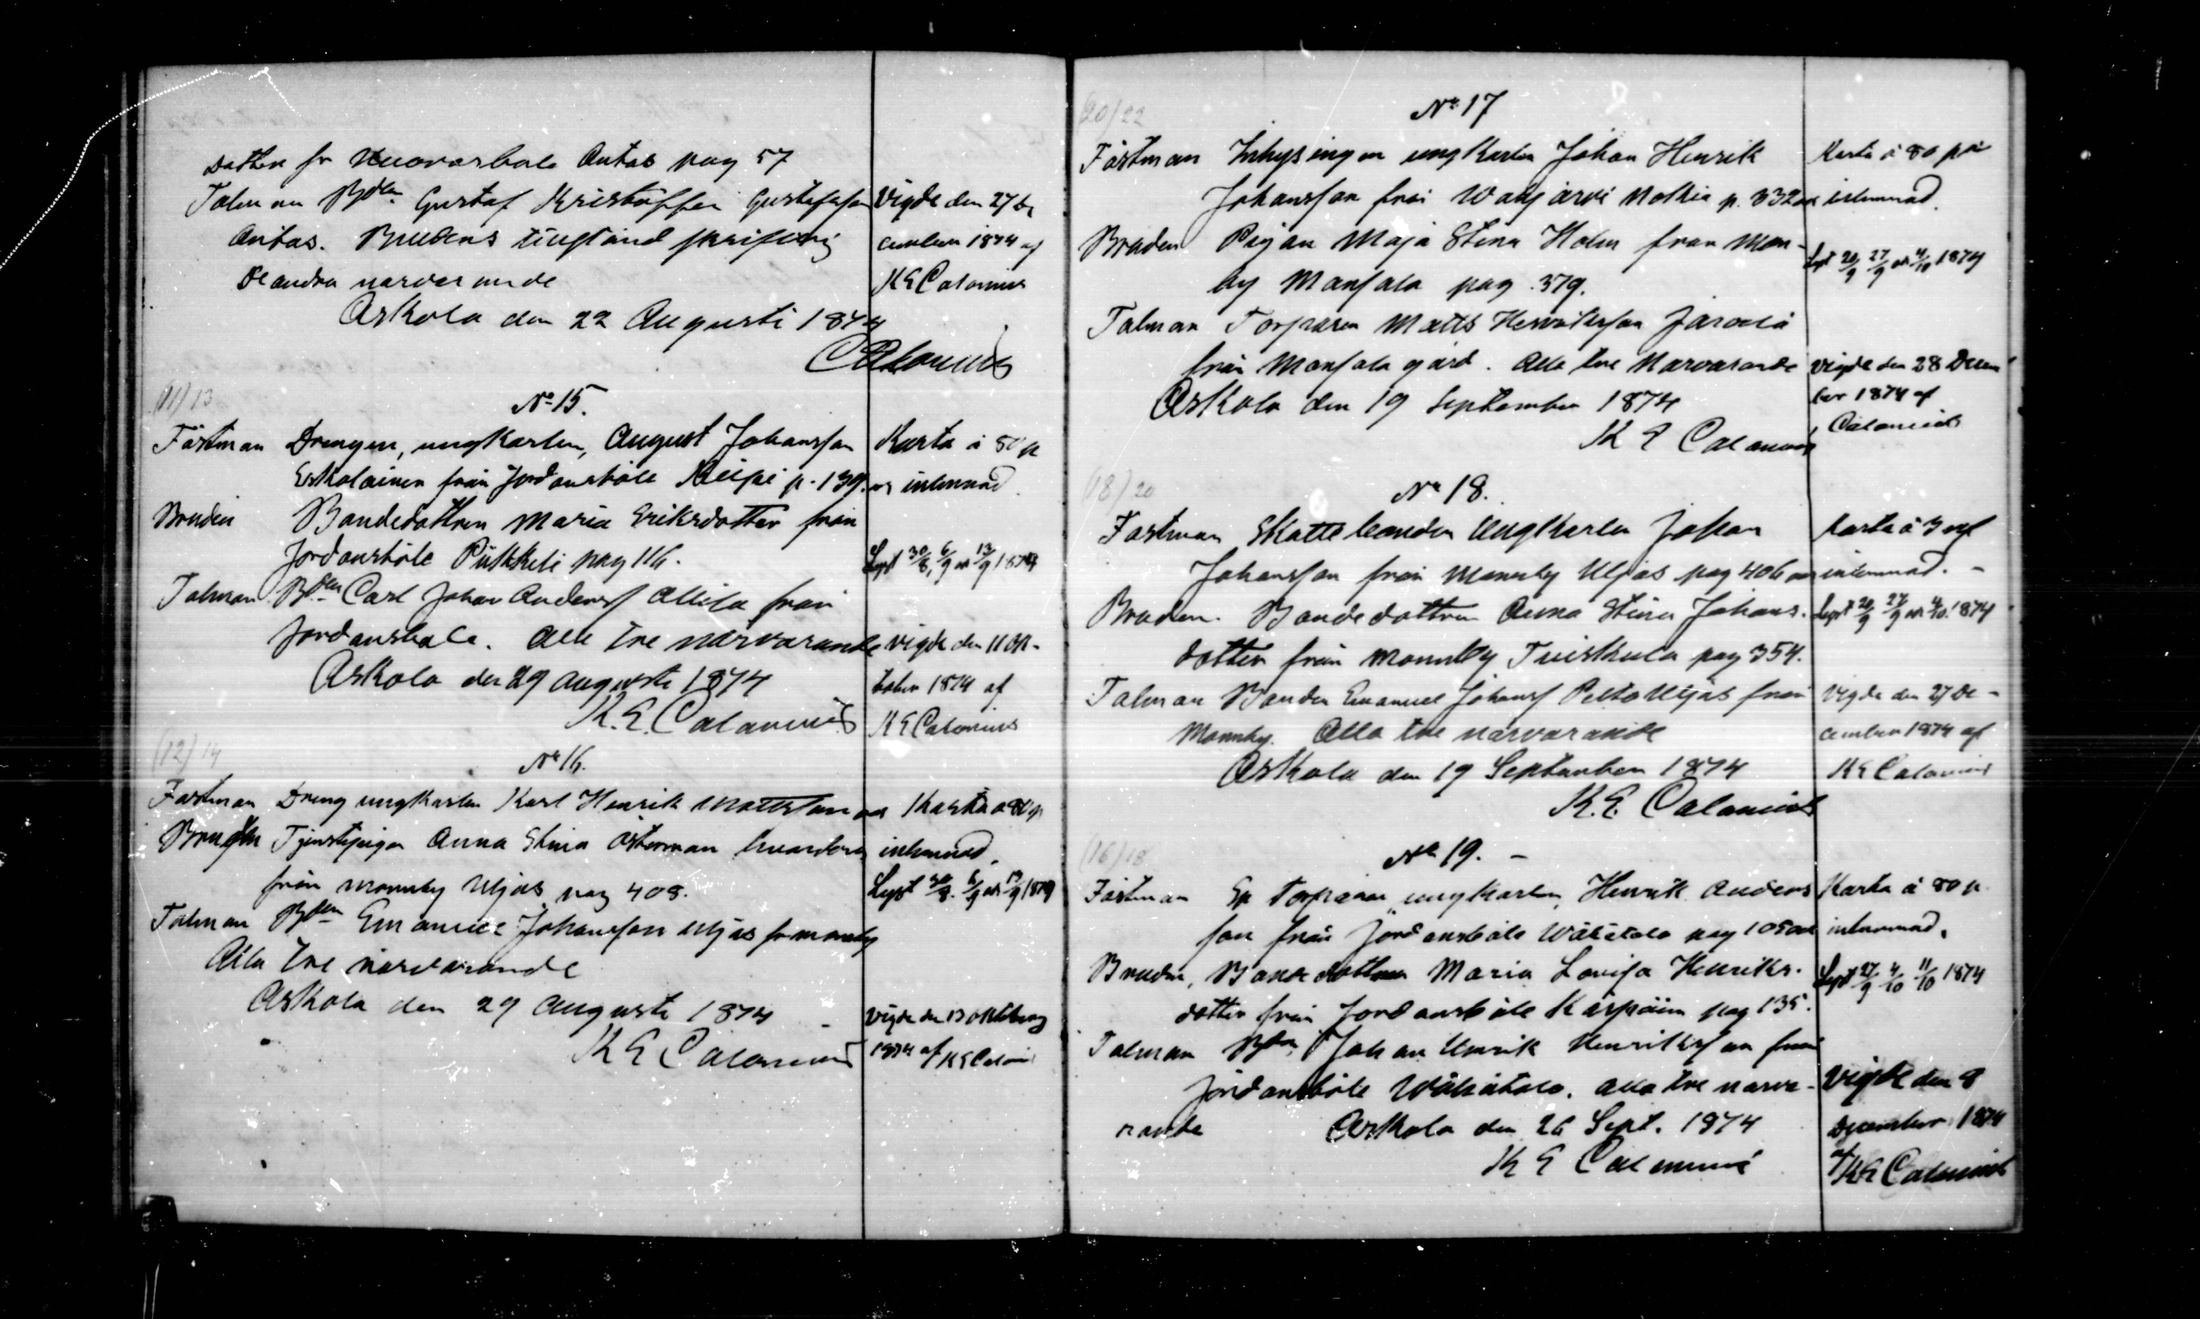 Dotter fr Monarbacka Antas pag 57
Talman Bdn Gustaf Kristoffer Gustafsson
Antas. Brudens tillstånd skriftlig
de andra närvarande
Askola den 22 Augusti 1874
Calonius
Vigde den 27 De
cember 1874 af
K E Calonius
(11) 13
No 15.
Fästman Drengen, ungkarlen, August Johansson
Eskolainen från Jordansböle Keipi p. 139.
Bruden Bondedottren Maria Eriksdotter från
Jordansböle Pukkeli pag 116.
Talman Bden Carl Johan Andersf Allila från
Jordansböle. Alla tre närvarande
Askola den 29 Augusti 1874
K. E. Calonius
Karta à 80 p
inlemnad.
Lyst 30/8, 6/9 o 13/9 1874
Vigde den 11 Ok-
tober 1874 af
K E Calonius
(12) 14
No 16.
Fästman Dreng ungkarlen Karl Henrik Mattsson
Bruden Tjenstepigan Anna Stina Österman hvardera
från Monnby Uljas pag 408.
Talman Bden Emanuel Johansson Uljas fr Monnby
Alla tre närvarande
Askola den 29 Augusti 1874
K E Calonius
Karta a 80 p
inlemnad.
Lyst 30/8. 6/9 o 13/9 1874
Vigde den 13 Oktober
1874 af K E Calonius
(20) 22
No 17
Fästman Inhysingen ungkarlen Johan Henrik
Johansson från Wahijärvi Nothia p. 332
Bruden Pigan Maja Stina Holm från Mon-
by Monsala pag. 379.
Talman Torparen Matts Henriksson Järvelä
från Monsala gård. Alla tre Närvarande
Askola den 19 September 1874
K E Calonius
Karta à 80 p är
inlemnad.
Lyst 20/9 27/9 o 4/10 1874
Vigde den 28 Decem
ber 1874 af
Calonius
(18) 20
No 18.
Fästman Skattebonden Ungkarlen Johan
Johansson från Monnby Uljas pag 406
Bruden. Bondedottren Anna Stina Johans-
dotter från Monnby Tuiskula pag 354.
Talman Bonden Emanuel Johansf Pelto Uljas från
Monnby. Alla tre närvarande
Askola den 19 September 1874
K. E. Calonius
Karta à 3 mf
inlemnad. -
Lyst 20/9 27/9 o 4/10. 1874
Vigde den 27 De-
cember 1874 af
K E Calonius
(16) 18
No 19. -
Fästman Ex torparen ungkarlen, Henrik Anders
son från Jordansböle Wähätalo pag 105
Bruden, Bondedottren Maria Lovisa Henriks-
dotter från Jordansböle Karpäin pag 135.
Talman Bden Johan Henrik Henriksson från
Jordansböle Wähätalo. Alla tre närva-
rande Askola den 26 Sept. 1874
K E Calonius
Karta à 80 p.
inlemnad.
Lyst 27/9 4/10 11/10 1874
Vigde den 8
December 1874
af K E Calonius